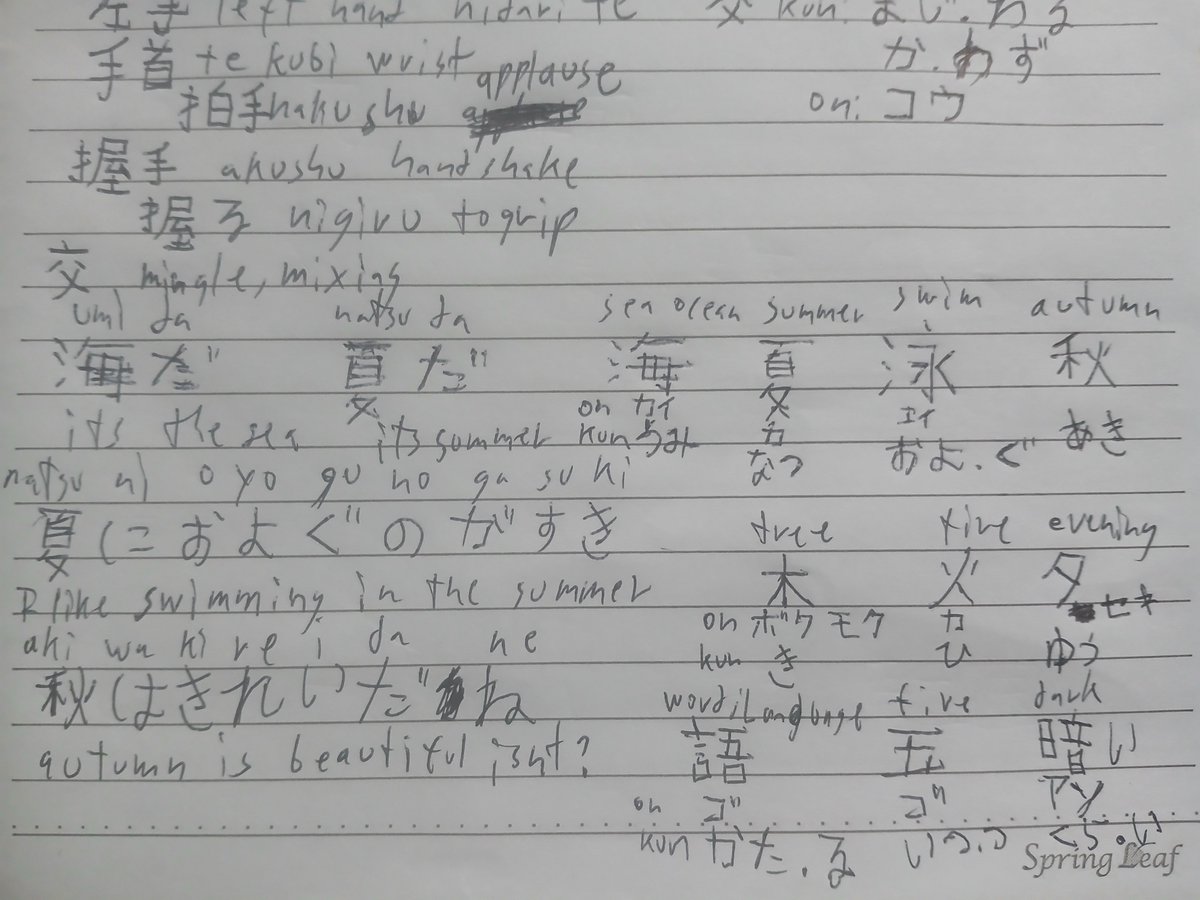 左手 left hand hidari te 交 kun: まじ.わる
手首 te kubi wrist applause か.わす
拍手 hakushu on: コウ
握手 akushu handshake
握る nigiru to grip
交 mingle, mixing
umi da natsu da sea ocean summer swim autumn
海だ 夏だ 海 夏 泳 秋
its the sea its summer on カイ kun うみ カ なつ エイ およ.ぐ あき
natsu ni o yo gu no ga su ki
夏におよぐのがすき tree fire evening
I like swimming in the summer 木 火 夕
aki wa ki re i da ne on ボク モク カ セキ
kun き ひ ゆう
秋はきれいだね word;language five dark
autumn is beautiful isnt? 語 五 暗い
on ゴ ゴ アン
kun かた.る いつ.つ くら.い
Spring Leaf